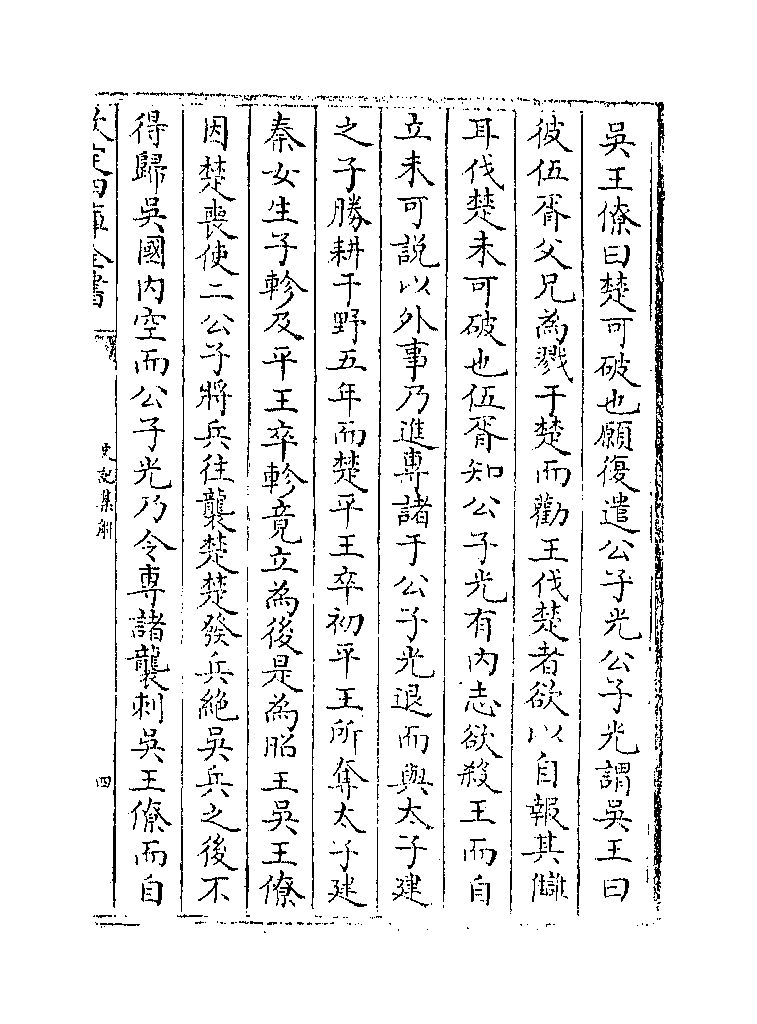 吳王僚曰楚可破也願復遣公子光公子光謂吳王曰
彼伍胥父兄為戮于楚而勸王伐楚者欲以自報其讎
耳伐楚未可破也伍胥知公子光有内志欲殺王而自
立未可說以外事乃進專諸于公子光退而與太子建
之子勝耕于野五年而楚平王卒初平王所奪太子建
秦女生子軫及平王卒軫竟立為後是為昭王吳王僚
因楚喪使二公子將兵往襲楚楚發兵絶吳兵之後不
得歸吳國内空而公子光乃令專諸襲刺吳王僚而自
欽定四庫全書
史記集解
四